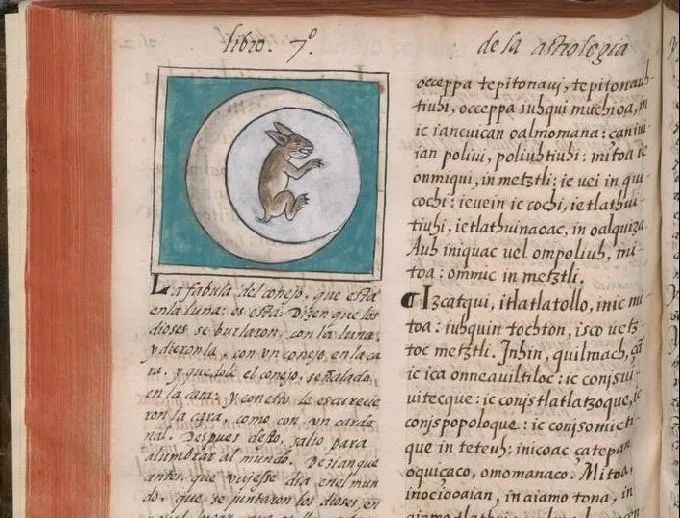 libro. 7º.
de la astrologia
La fabula del conejo, que esta
en la luna: es esta. Dizen que los
dioses se burlaron, con la luna,
y dieronla, con vn conejo, en la ca
ra. y quedole el conejo, señalado
en la cara: y con esto le escurecie
ron la cara, como con vn carde
nal. Despues desto, salio para
alumbrar al mundo. Dezian que
antes que vuiesse dia enel mun
do, que se juntaron los dioses, en
occeppa tepitonaui, tepitonauh-
tiuh, occeppa iuhqui muchioa, in
ic iancuican oalmomana: çan iuii-
ian poliui, poliuhtiuh: mitoa ie
onmiqui, in metztli: ie uei in qui
cochi: ieuein ic cochi, ie tlathui-
tiuh, ie tlathuinaoac, in oalquiza.
Auh iniquac uel ompoliuh, mi-
toa: ommic in metztli.
¶Izcatqui, itlatlatollo, inic mi-
toa: iuhquin tochton, isco uetz-
toc metztli. Inhin, quilmach, çã
ic ica onneauiltiloc: ic conisui-
uitecque: ic conistlatlatzoque, ic
conispopoloque: ic conisomicti-
que in teteuh: inicoac çatepan
oquiçaco, omomanaco. Mitoa,
inociooaian, in aiamo tona, in